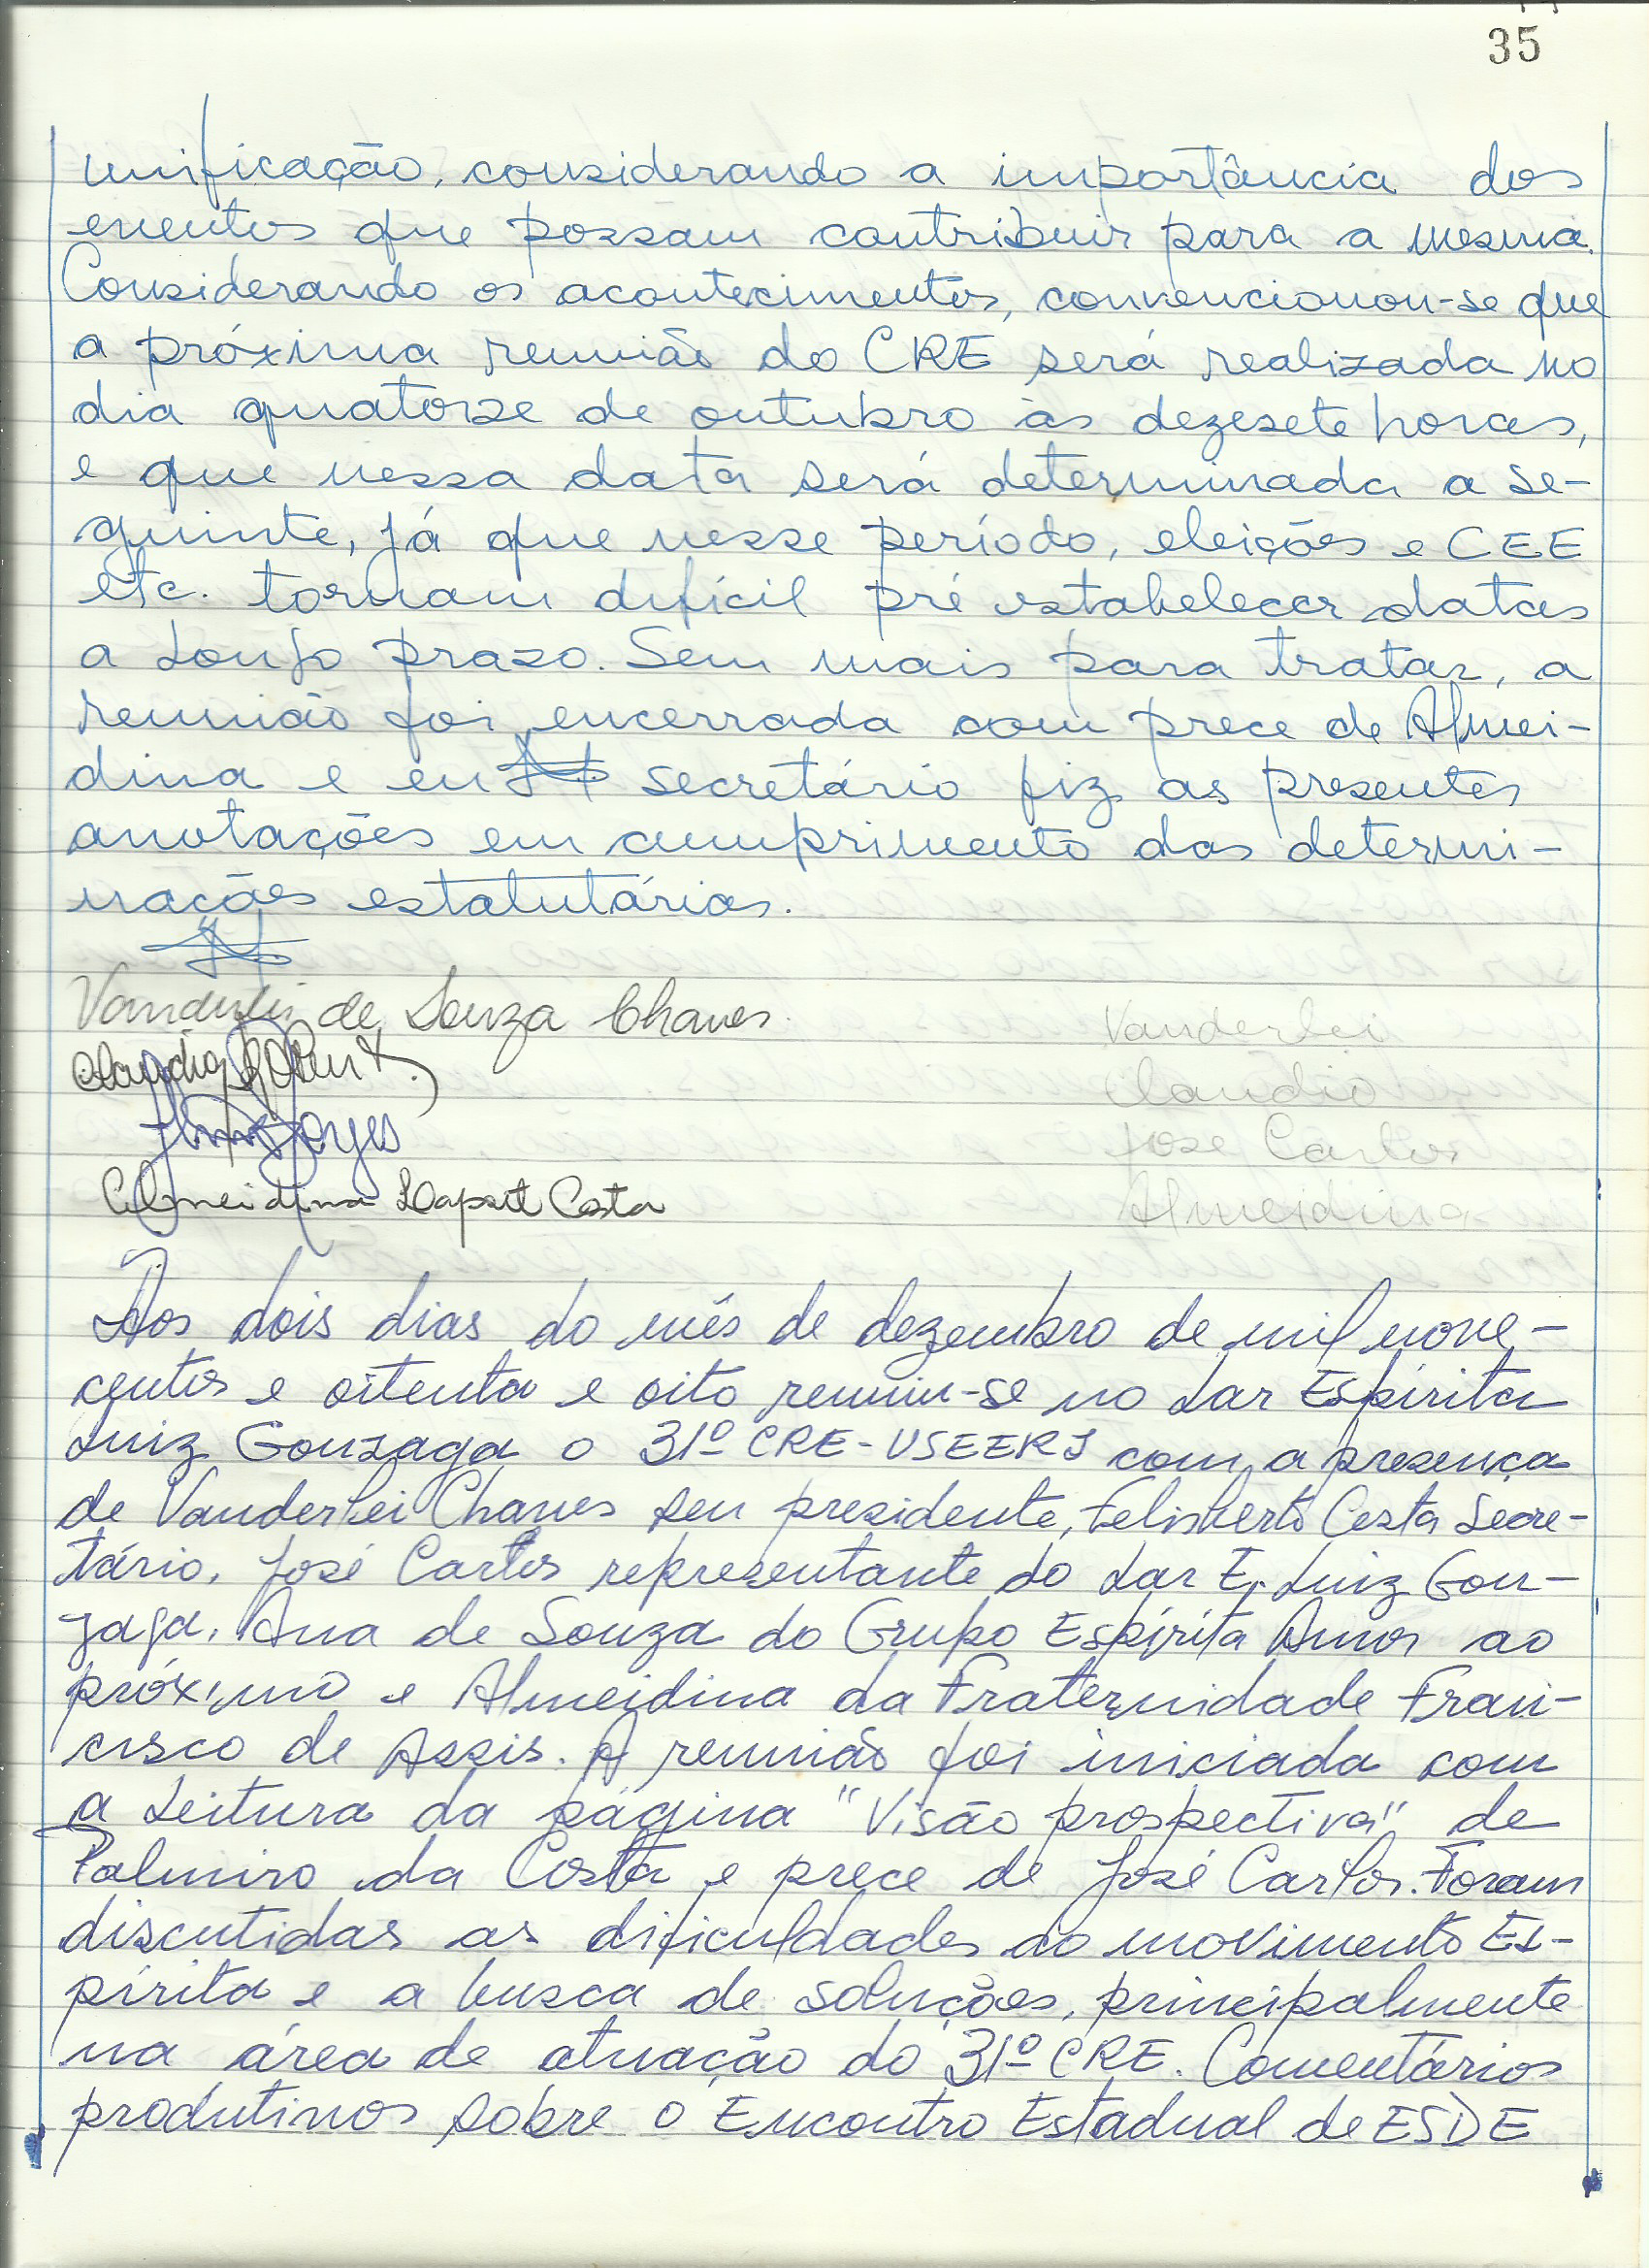 35
unificação, considerando a importância dos
eventos que possam contribuir para a mesma.
Considerando os acontecimentos, convencionou-se que
a próxima reunião do CRE será realizada no
dia quatorze de outubro às dezesete horas,
e que nessa data será determinada a se-
guinte, já que nesse período, eleições e CEE
etc. tornam difícil pré estabelecer datas
a longo prazo. Sem mais para tratar, a
reunião foi encerrada com prece de Almei-
dina e eu secretário fiz as presentes
anotações em cumprimento das determi-
nações estatutárias.
Vanderlei de Souza Chaves
Vanderlei
Claudio
José Carlos
Almeidina Laport Costa
Almeidina
Aos dois dias do mês de dezembro de mil nove-
centos e oitenta e oito reuniu-se no Lar Espírita
Luiz Gonzaga o 31º CRE-USEERJ com a presença
de Vanderlei Chaves seu presidente, Felisberto Costa Secre-
tário, José Carlos representante do Lar E. Luiz Gon-
zaga, Ana de Souza do Grupo Espírita Amor ao
próximo e Almeidina da Fraternidade Fran-
cisco de Assis. A reunião foi iniciada com
a leitura da página "Visão prospectiva" de
Palmiro da Costa e prece de José Carlos. Foram
discutidas as dificuldades do movimento Es-
pírita e a busca de soluções, principalmente
na área de atuação do 31º CRE. Comentários
produtivos sobre o Encontro Estadual de ESDE